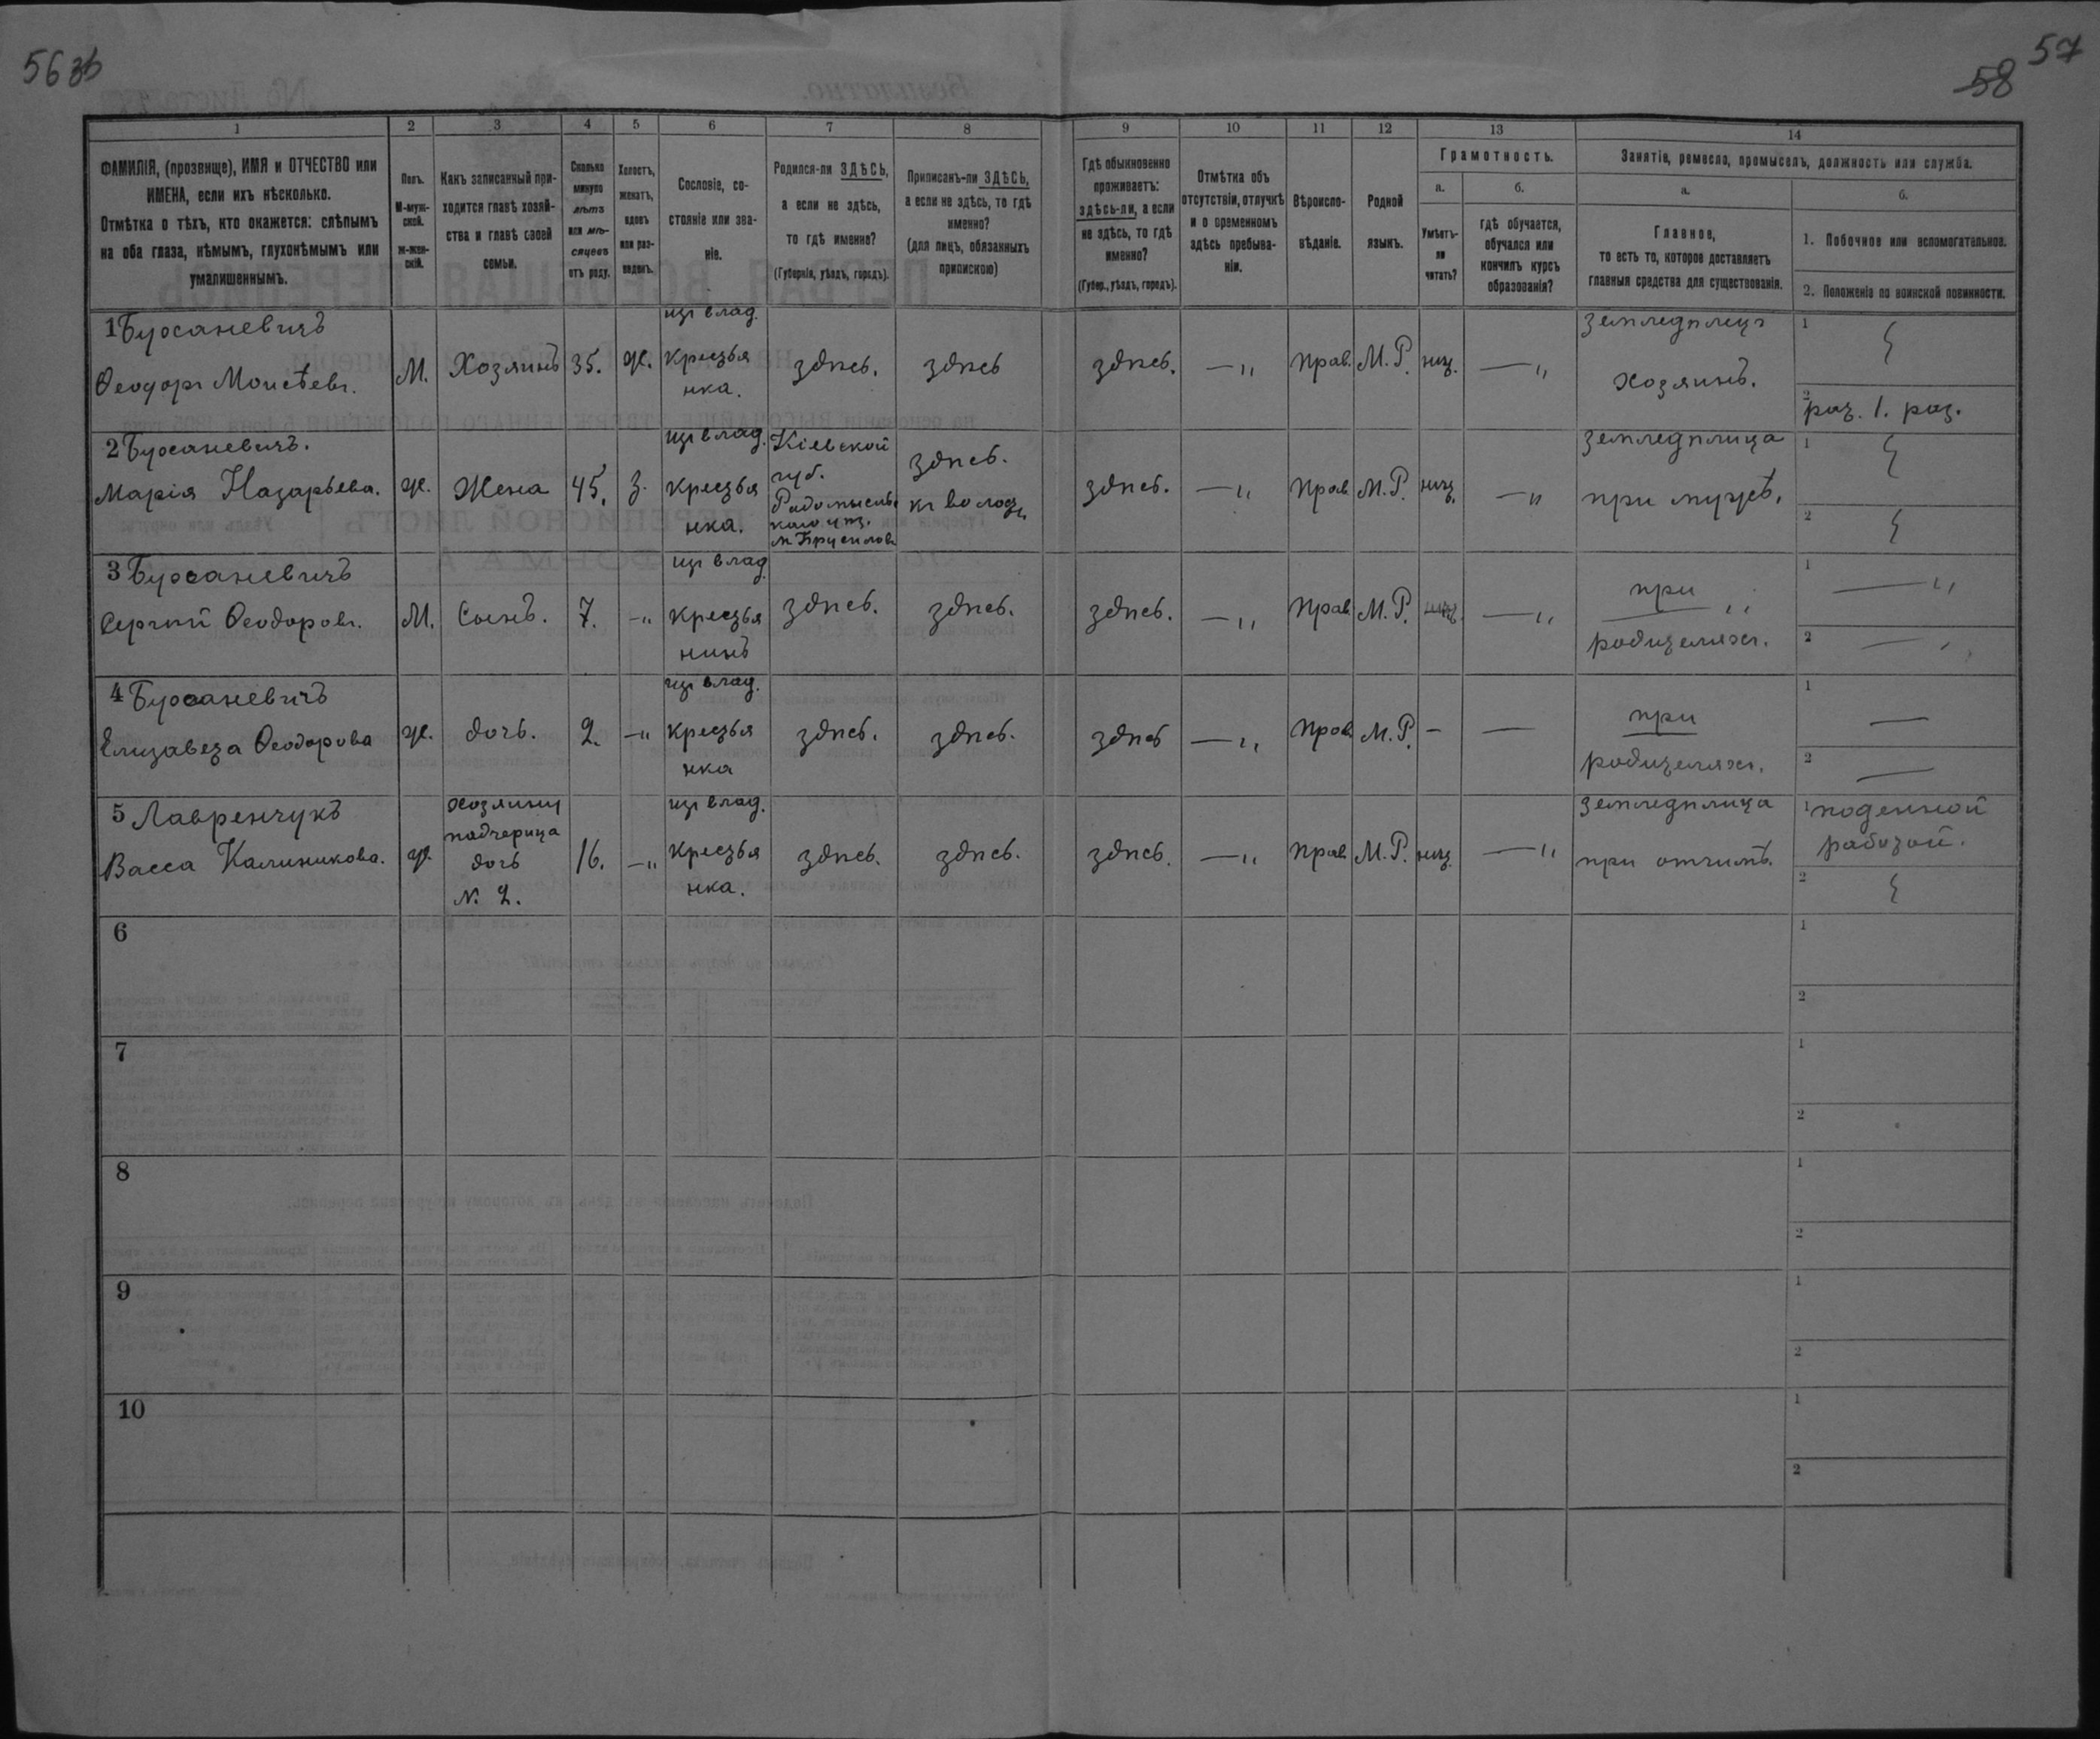 56 об
58 57
1 2 3 4 5 6 7 8 9 10 11 12 13 14
ФАМИЛІЯ, (прозвище), ИМЯ и ОТЧЕСТВО или
ИМЕНА, если ихъ нѣсколько.
Отмѣтка о тѣхъ, кто окажется: слѣпымъ
на оба глаза, нѣмымъ, глухонѣмымъ или
умалишеннымъ.
Полъ.
М-муж-
ской.
ж-жен-
скій.
Какъ записанный при-
ходится главѣ хозяй-
ства и главѣ своей
семьи.
Сколько
минуло
лѣтъ
или мѣ-
сяцевъ
отъ роду.
Холостъ,
женатъ,
вдовъ
или раз-
веденъ.
Сословіе, со-
стояніе или зва-
ніе.
Родился-ли ЗДѢСЬ,
а если не здѣсь,
то гдѣ именно?
(Губернія, уѣздъ, городъ).
Приписанъ-ли ЗДѢСЬ,
а если не здѣсь, то гдѣ
именно?
(для лицъ, обязанныхъ
припискою)
Гдѣ обыкновенно
проживаетъ:
здѣсь-ли, а если
не здѣсь, то гдѣ
именно?
(Губер., уѣздъ, городъ).
Отмѣтка объ
отсутствіи, отлучкѣ
и о временномъ
здѣсь пребыва-
ніи.
Вѣроиспо-
вѣданіе.
Родной
языкъ.
Грамотность.
а.
Умѣетъ-
ли
читать?
б.
гдѣ обучается,
обучался или
кончилъ курсъ
образованія?
Занятіе, ремесло, промыселъ, должность или служба.
а.
Главное,
то есть то, которое доставляетъ
главныя средства для существованія.
б.
1. Побочное или вспомогательное.
2. Положеніе по воинской повинности.
1
Ѳеодоръ Моисѣевъ.
М.
Хозяинъ
35.
ж.
изъ влад.
крестья
нка.
здѣсь.
здѣсь
здѣсь.
—"
прав.
М. Р.
нѣт.
—"
земледѣлецъ
хозяинъ.
1
2
раз. 1. раз.
2
Марія Назарьева.
ж.
Жена
45.
з.
изъ влад.
крестья
нка.
Кіевской
губ.
Радомысльс
каго уѣз.
м. Брусиловъ
здѣсь.
къ волости
здѣсь.
—"
прав.
М. Р.
нѣт.
—"
земледѣлица
при мужѣ.
1
2
3
Сергѣй Ѳеодоровъ.
М.
Сынъ.
7.
—"
изъ влад.
крестья
нинъ
здѣсь.
здѣсь.
здѣсь.
—"
прав.
М. Р.
—"
при
родителяхъ.
1 —"
2 —
4
Елизавета Ѳеодорова
ж.
дочь.
2.
—"
изъ влад.
крестья
нка
здѣсь.
здѣсь.
здѣсь
—"
прав.
М. Р.
—
—
при
родителяхъ.
1 —
2 —
5 Лавренчукъ
Васса Калиникова.
ж.
хозяину
падчерица
дочь
№ 2.
16.
—"
изъ влад.
крестья
нка.
здѣсь.
здѣсь.
здѣсь.
—"
прав.
М. Р.
нѣт.
—"
земледѣлица
при отчимѣ.
1 поденной
работой.
2
6
1
2
7
1
2
8
1
2
9
1
2
10
1
2